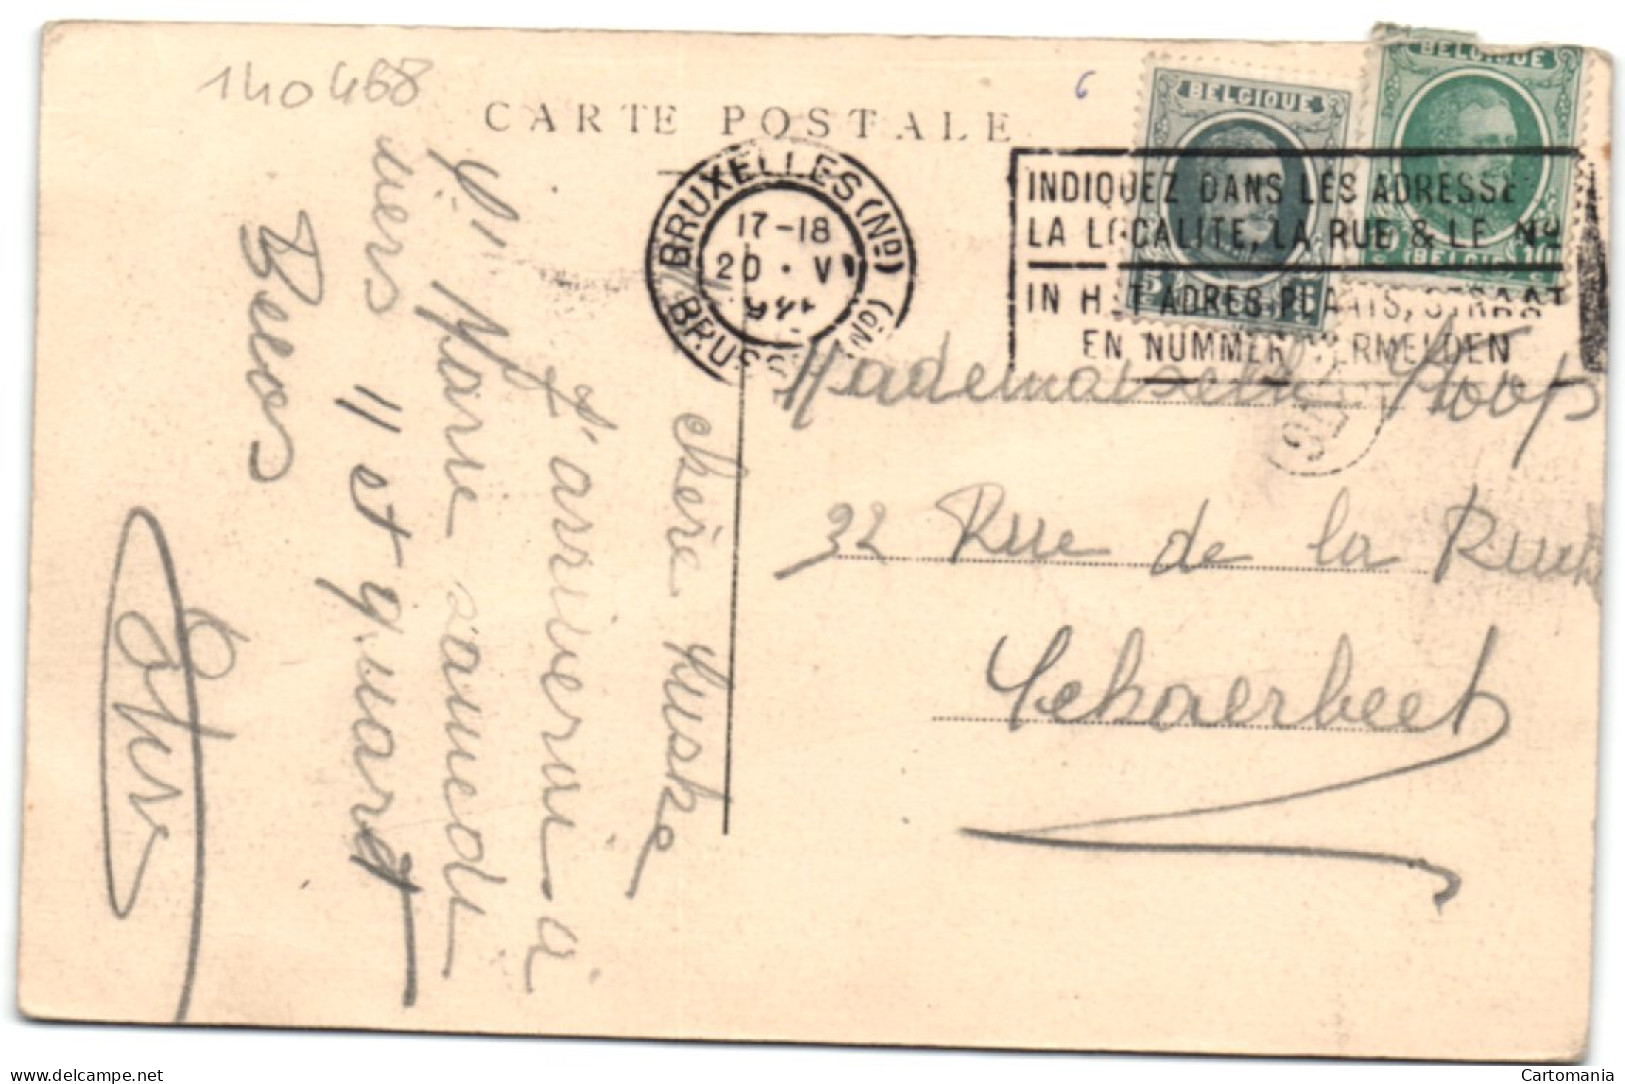 140468
CARTE POSTALE
6
BELGIQUE
BELGIQUE
BRUXELLES (Nd)
17-18
20 · VI
BRUSS
INDIQUEZ DANS LES ADRESSE
LA LOCALITE, LA RUE & LE No
IN H T ADRES PLAATS, STRAAT
EN NUMMER VERMELDEN
BELGIE
chère Suske
J'arriverai à
St Marie samedi
vers 11 et quart
Mademoiselle
32 Rue de la Ruche
Schaerbeek
www.delcampe.net
Cartomania